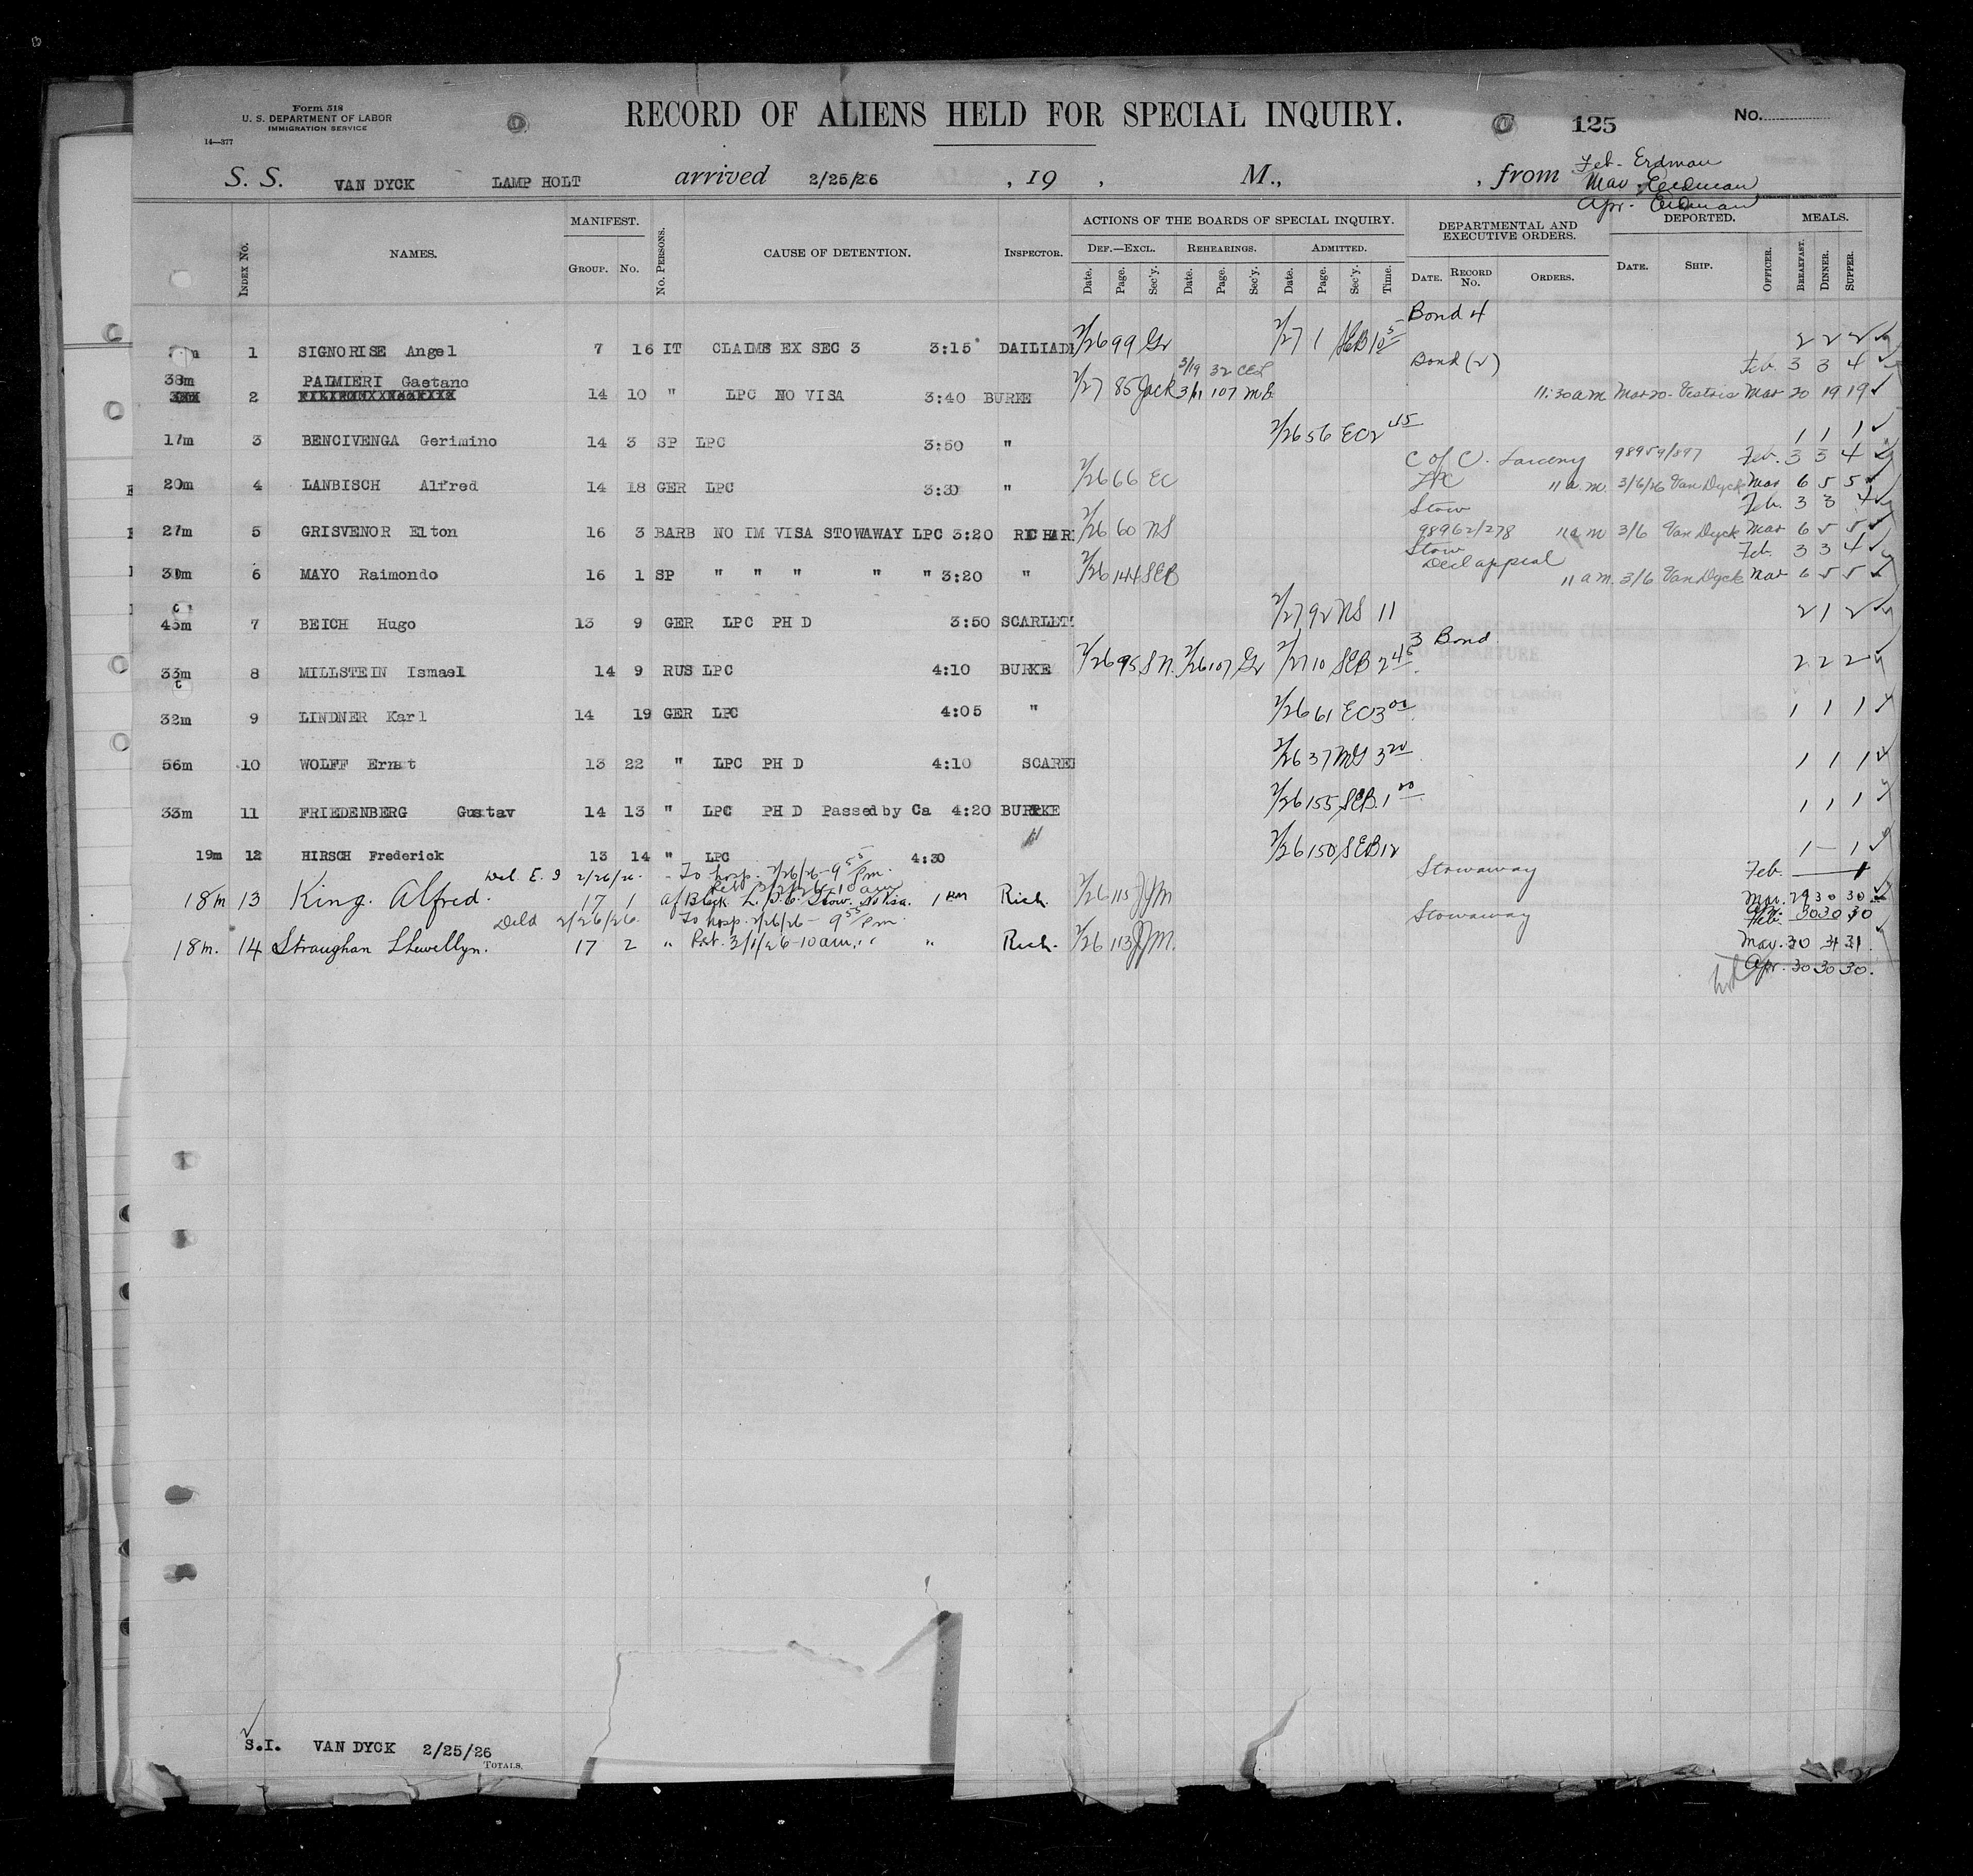 Form 518
U. S. DEPARTMENT OF LABOR
IMMIGRATION SERVICE
14—377
RECORD OF ALIENS HELD FOR SPECIAL INQUIRY.
125
No.
S. S. VAN DYCK LAMP HOLT arrived 2/25/26 , 19 , M., , from
Feb. Erdman
Mar. Erdman
Apr. Erdman
INDEX No. NAMES. MANIFEST. GROUP. NO. No. PERSONS. CAUSE OF DETENTION. INSPECTOR. ACTIONS OF THE BOARDS OF SPECIAL INQUIRY. DEF.—EXCL. REHEARINGS. ADMITTED. DEPARTMENTAL AND EXECUTIVE ORDERS. DEPORTED. MEALS.
Date. Page. Sec'y. Date. Page. Sec'y. Date. Page. Sec'y. Time. DATE. RECORD NO. ORDERS. DATE. SHIP. OFFICER. BREAKFAST. DINNER. SUPPER.
Bond 4
1 SIGNORISE Angel 7 16 IT CLAIMS EX SEC 3 3:15 DAILIADI 2/26 99 Gr 2/27 1 SEB 10 5 2 2 2
Bond (2) Feb. 3 3 4
38m PALMIERI Gaetano 3/19 32 CEL
2 14 10 " LPC NO VISA 3:40 BURKE 2/27 85 Jack 3/11 107 11:30 am Mar 20 - Vestris Mar 20 19 19
17m 3 BENCIVENGA Gerimino 14 3 SP LPC 3:50 " 2/26 56 EC 2 45 1 1 1
C of C. Larceny 98959/897 Feb. 3 3 4
20m 4 LANBISCH Alfred 14 18 GER LPC 3:30 " 2/26 66 EC LPC 11 a.m. 3/6/26 Van Dyck Mar 6 5 5
Stow Feb. 3 3 4
27m 5 GRISVENOR Elton 16 3 BARB NO IM VISA STOWAWAY LPC 3:20 RICHAR 2/26 60 NS 98962/278 11 a m 3/6 Van Dyck Mar 6 5 5
Stow Feb. 3 3 4
Decl appeal
30m 6 MAYO Raimondo 16 1 SP " " " " " 3:20 " 2/26 144 SEB 11 a m. 3/6 Van Dyck Mar 6 5 5
45m 7 BEICH Hugo 13 9 GER LPC PH D 3:50 SCARLET 2/27 92 NS 11 2 1 2
3 Bond
33m 8 MILLSTEIN Ismael 14 9 RUS LPC 4:10 BURKE 2/26 95 S N. 2/26 107 Gr 2/27 10 SEB 2 45 2 2 2
32m 9 LINDNER Karl 14 19 GER LPC 4:05 " 2/26 61 EC 3 00 1 1 1
56m 10 WOLFF Ernst 13 22 " LPC PH D 4:10 SCARLE 2/26 37 MG 3 20 1 1 1
33m 11 FRIEDENBERG Gustav 14 13 " LPC PH D Passed by Ca 4:20 BURKE 2/26 155 SEB. 1 20 1 1 1
19m 12 HIRSCH Frederick 13 14 " LPC 4:30 2/26 150 SEB 12 1 — 1
2/26/26. To hosp. 2/26/26 - 9 55 Pm. Stowaway Feb. — 1
18m 13 King. Alfred. 17 1 Af Black L.P.C. Stow. No Visa. 1 Pm Rich. 2/26 115 JJM Mar. 29 30 30
Deld 2/26/26. To hosp. 2/26/26 - 9 55 Pm Stowaway
18m. 14 Straughan Llewellyn. 17 2 " Ret. 3/1/26 - 10 am. " " Rich. 2/26 113 JJM. Mar. 30 31 31
Apr. 30 30 30.
S.I. VAN DYCK 2/25/26
TOTALS.